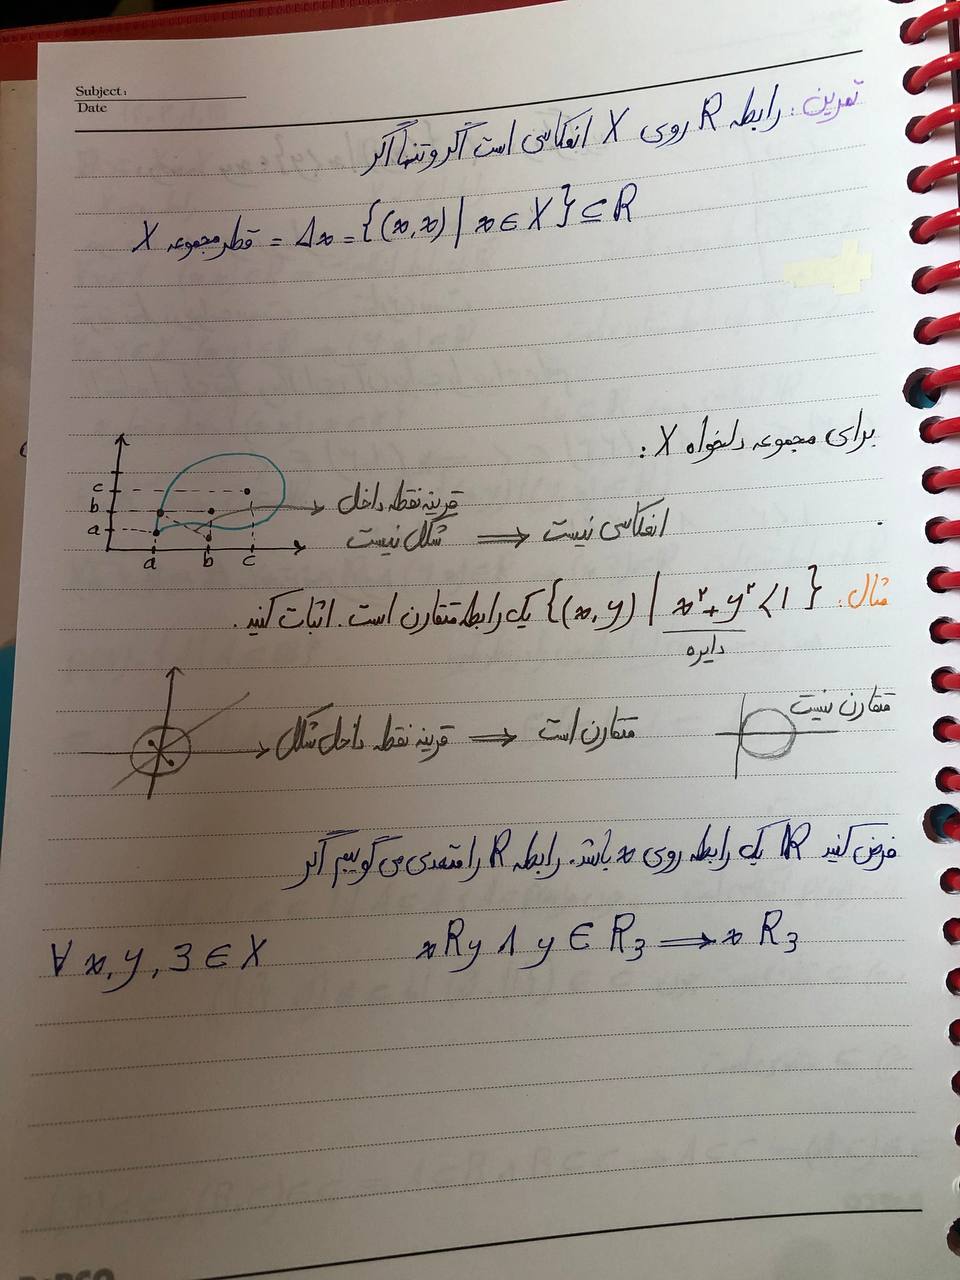 Subject:
Date
تمرین: رابطه R روی X انعکاسی است اگر و تنها اگر
قطر مجموعه X = Δx = {(x,x) | x ∈ X} ⊆ R
برای مجموعه دلخواه X:
c
b
a
a b c
قرینه نقطه داخل
شکل نیست ⟹ انعکاسی نیست
مثال: {(x,y) | x²+y²<1} یک رابطه متقارن است. اثبات کنید.
دایره
قرینه نقطه داخل شکل ⟹ متقارن است
متقارن نیست
فرض کنید R یک رابطه روی x باشد. رابطه R را متعدی می گوییم اگر
∀ x,y,z ∈ X xRy ∧ y ∈ Rz ⟹ x Rz